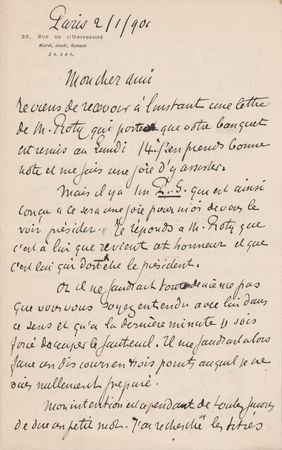 Paris 2/1/901
39, RUE DE L'UNIVERSITÉ
Mardi, Jeudi, Samedi
Mon cher ami
reviens de recevoir à l'instant une lettre
de M. Roty qui porte que votre banquet
est remis au lundi 14. J'en prends bonne
note et me fais une joie d'y assister.
Mais il y a un P.S. qui est ainsi
conçu « ce sera une joie pour moi de vous le
voir présider. » Je réponds à M. Roty que
c'est à lui que revient cet honneur et que
c'est lui qui doit être le président.
Or il ne faudrait tout de même pas
que vous vous soyez entendu avec lui dans
ce sens et qu'à la dernière minute je sois
forcé d'occuper le fauteuil. Il me faudrait alors
faire un discours en trois points auquel je ne
suis nullement préparé.
Mon intention est cependant de toutes façons
de dire un petit mot. J'ai recherché les titres